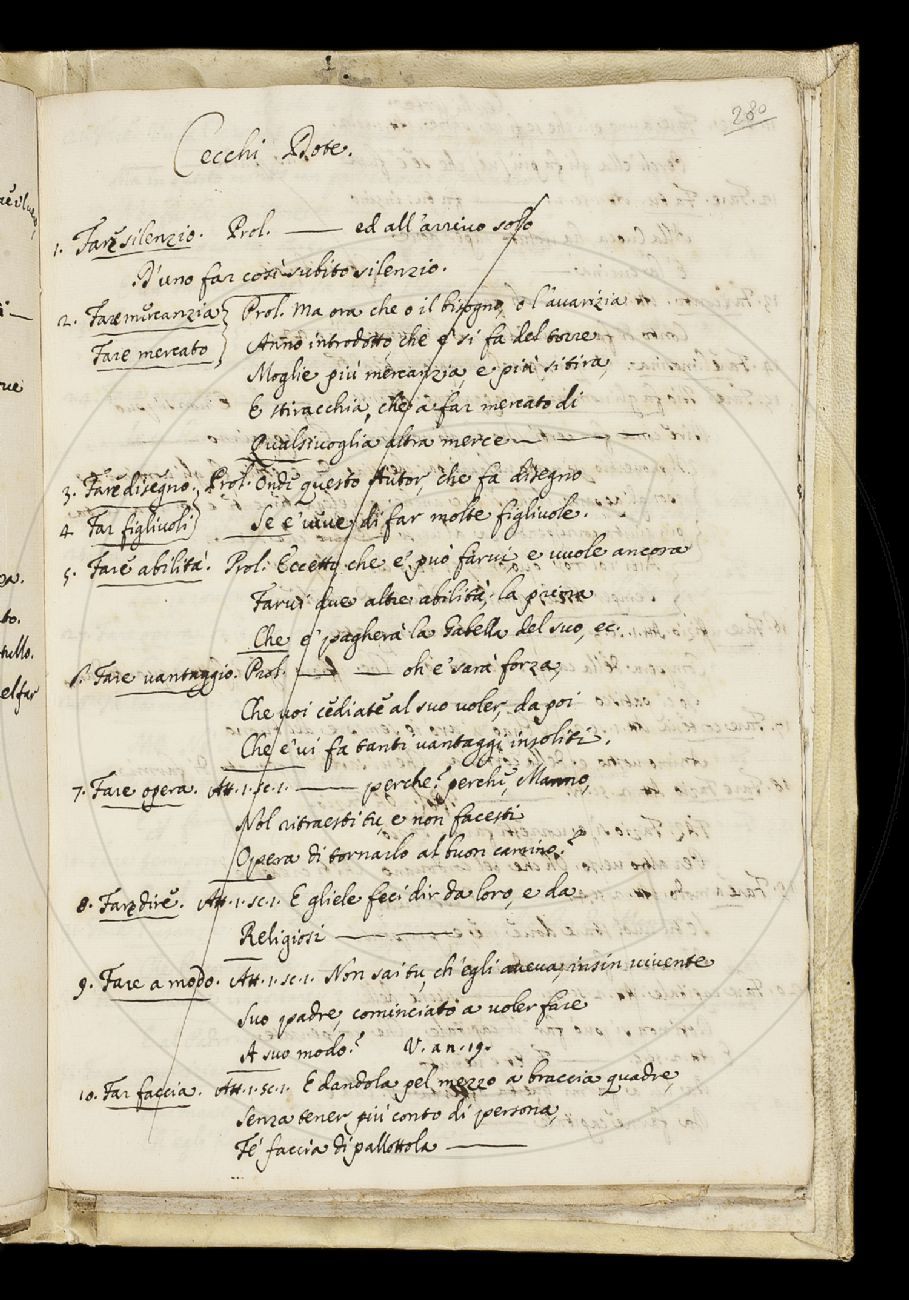 280
Cecchi Dote.
1. Fare silenzio. Prol. —— ed all'arrivo solo
D'uno far così subito silenzio.
2. Fare mercanzia } Prol. Ma ora che o il bisogno, o l'avarizia
Fare mercato } Anno introdotto, che e' si fa del torre
Moglie più mercanzia, e più si tira,
E stiracchia, che a far mercato di
Qualsivoglia altra merce — —
3. Fare disegno. } Prol. Onde questo Autor, che fa disegno
4. Far figlivoli } Se e' vive, di far molte figlivole.
5. Fare abilità. Prol. Eccetto che e' può farvi, e vuole ancora
Farvi due altre abilità; la prima
Che e' pagherà la Gabella del suo, ec.
6. Fare vantaggio. Prol. —— —— oh e' sarà forza,
Che voi cediate al suo voler, da poi
Che e' vi fa tanti vantaggi insoliti.
7. Fare opera. Att. 1. sc. 1. —— perche? perche, Manno,
Nol ritraesti tu, e non facesti
Opera di tornarlo al buon camino?
8. Fare dire. Att. 1. sc. 1. E gliele feci dir da loro, e da
Religiosi —— ——
9. Fare a modo. Att. 1. sc. 1. Non sai tu, ch'egli aveva, insin vivente
Suo padre, cominciato a voler fare
A suo modo? V. an. 19.
10. Far faccia. Att. 1. sc. 1. E dandola pel mezzo a braccia quadre,
Senza tener più conto di persona,
Fé faccia di pallottola ——
tullo.
el far